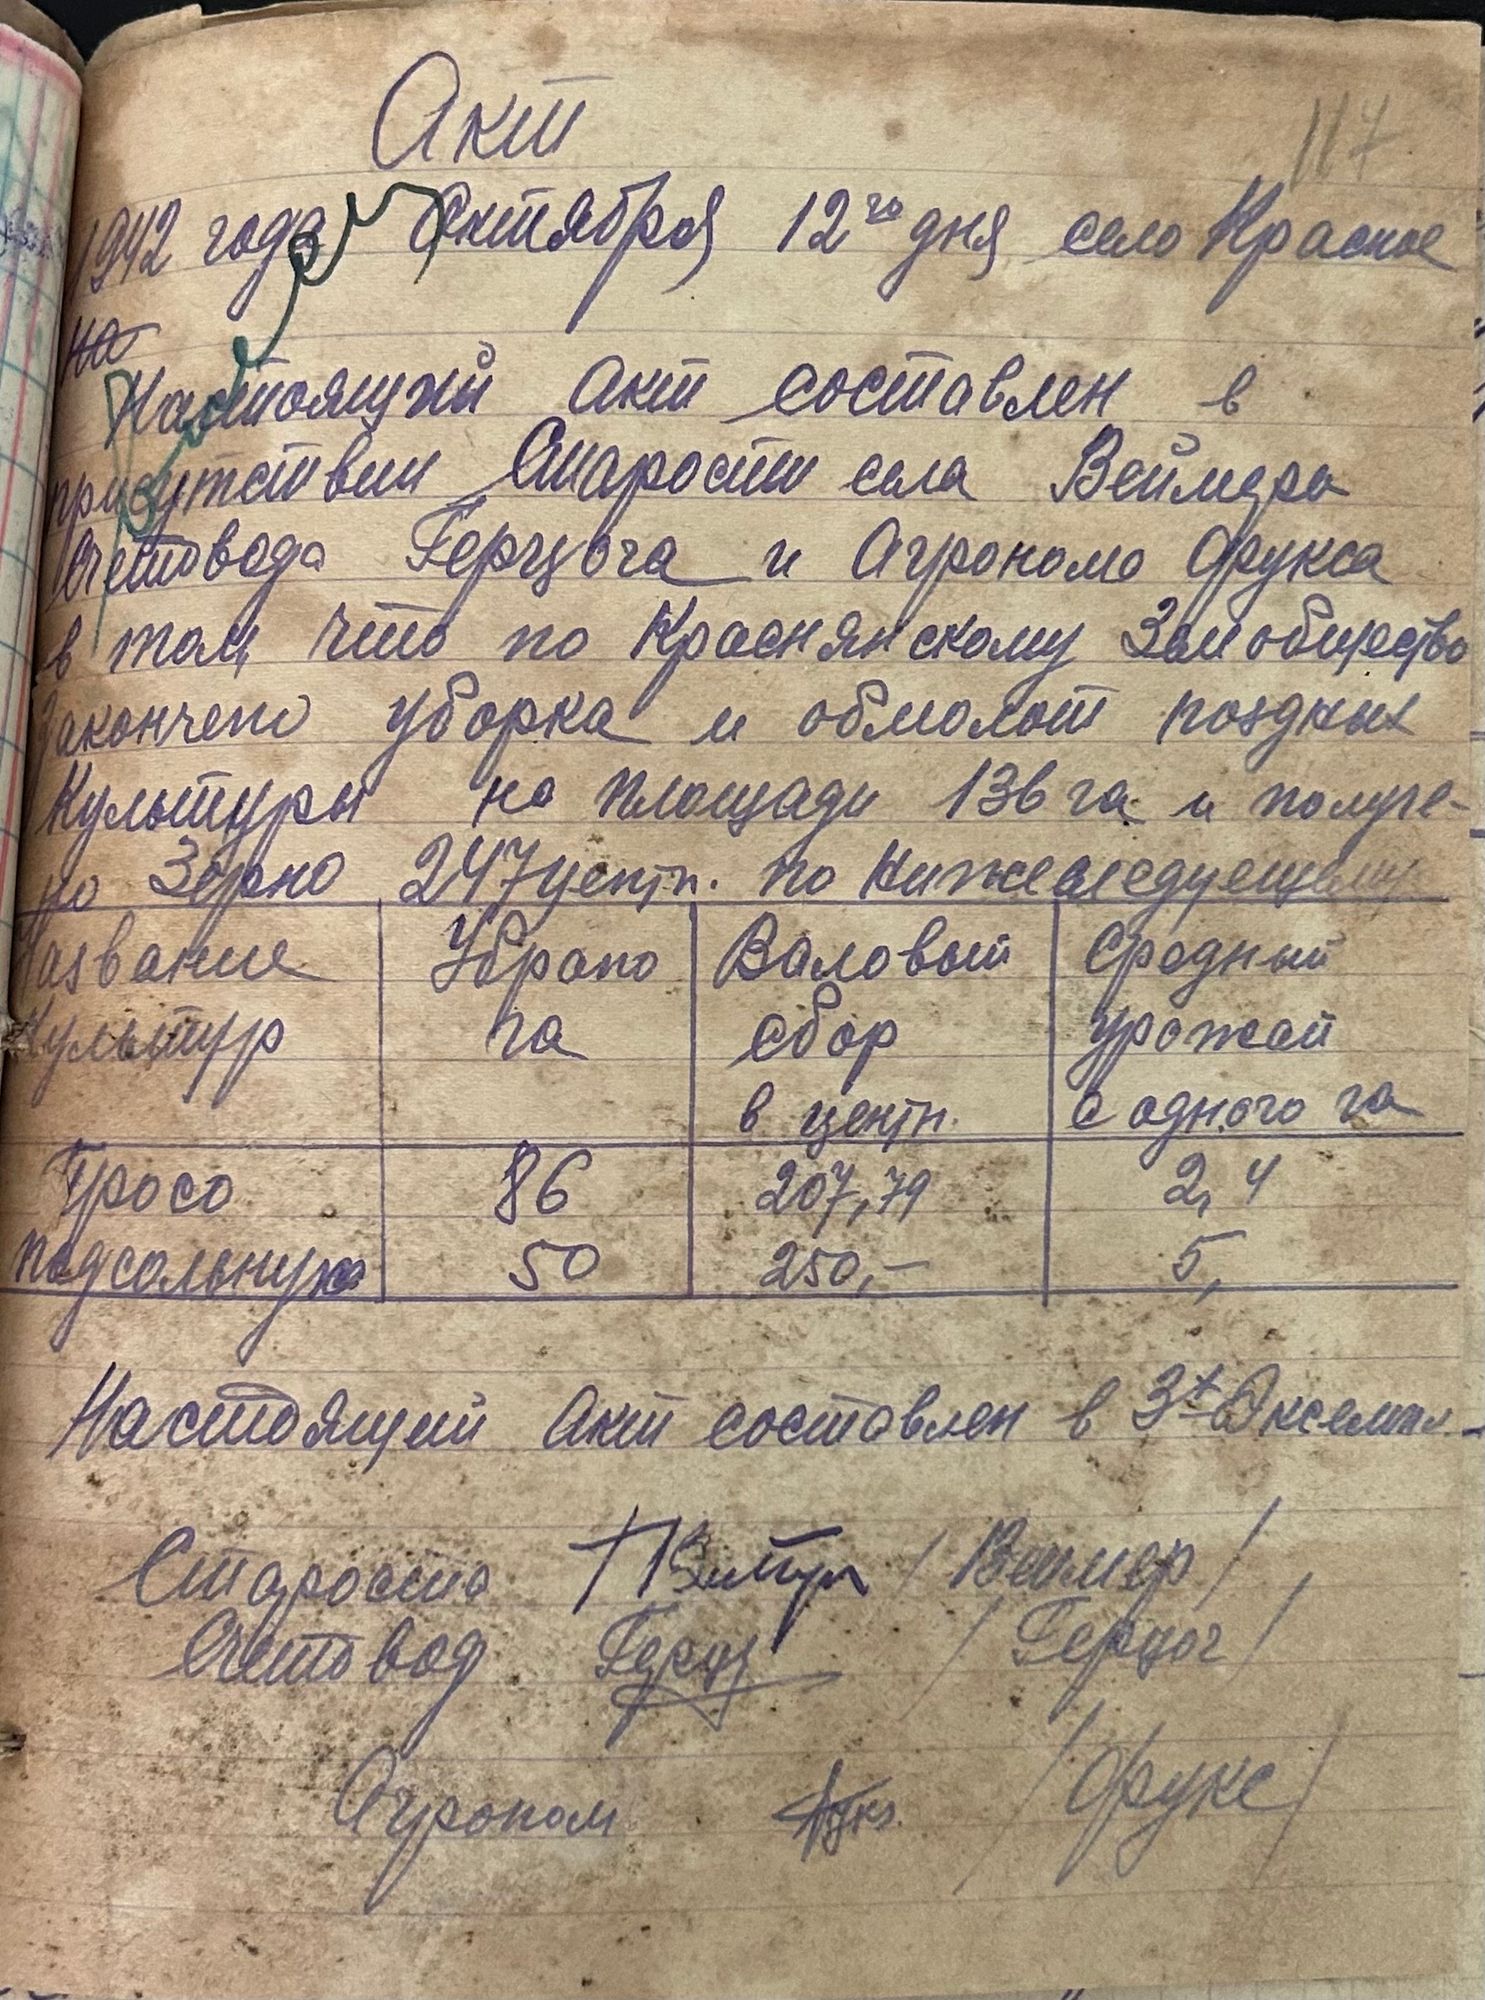 117
Акт
1942 года Октября 12го дня село Красное
на
Настоящий акт составлен в
присутствии Старости села Веймера
Счетовода Герцога и Агронома Фукса
в том, что по КраснянскомуЗемобщество
Закончено уборка и обмолот поздних
Культуры на площади 136 га и получе-
но Зерно 247 центн. по Нижеследующему
Название | Убрано | Валовый | Средный
Культур | га | сбор | урожай
в центн. | с одного га
Просо | 86 | 207,79 | 2,4
подсольнуха | 50 | 250,- | 5,
Настоящий акт составлен в 3х Экземпл.-
Староста / Веймер /
Счетовод Герцог / Герцог /
Агроном Фукс. / Фукс /